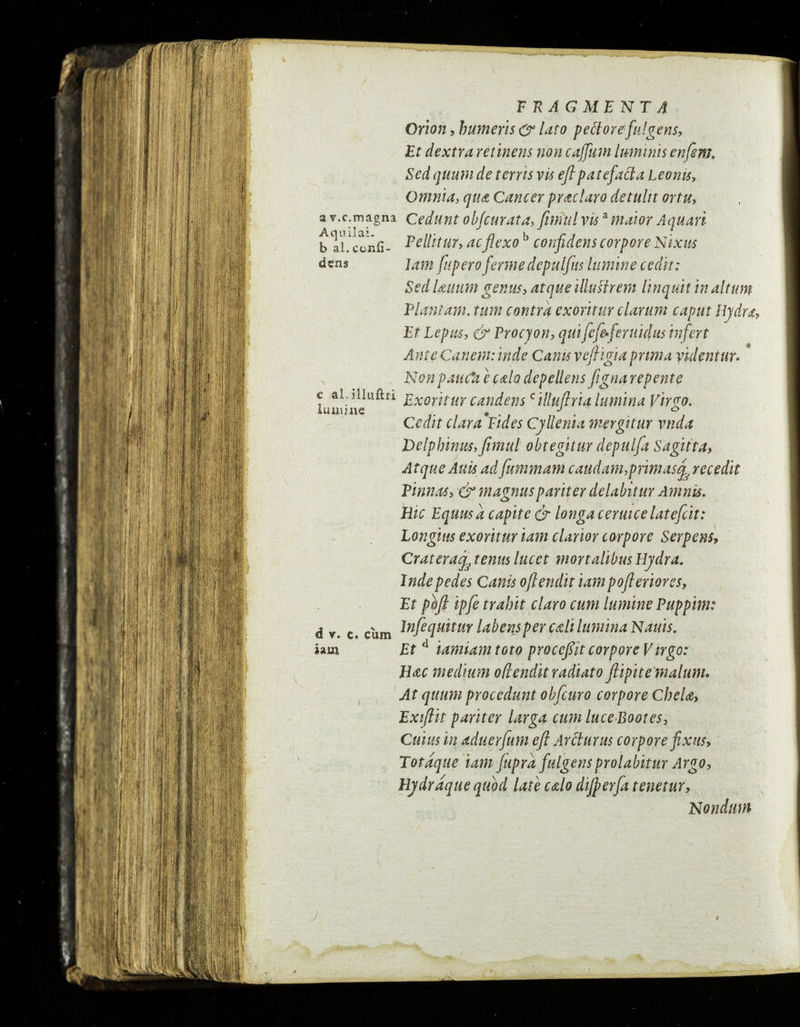 FRAGMENTA
Orion, humeris & lato pectore fulgens,
Et dextra retinens non cassum luminis ensem.
Sed quum de terris vis est patefacta Leonis,
Omnia, quæ Cancer præclaro detulit ortu,
a v.c. magna Aquilai.
Cedunt obscurata, simul vis ª maior Aquari
b al. confi-dens
Pellitur, ac flexo ᵇ confidens corpore Nixus
Iam supero ferme depulsus lumine cedit:
Sed læuum genus, atque illustrem linquit in altum
Plantam. tum contrà exoritur clarum caput Hydræ,
Et Lepus, & Procyon, qui sese feruidus infert
Ante Canem: inde Canis vestigia prima videntur.
Non paucis è cælo depellens signa repente
c al. illustri lumine
Exoritur candens ᶜ illustria lumina Virgo.
Cedit clara * Fides Cyllenia mergitur vnda
Delphinus, simul obtegitur depulsa Sagitta,
Atque Auis ad summam caudam, primasq; recedit
Pinnas, & magnus pariter delabitur Amnis.
Hic Equus à capite & longa ceruice latescit:
Longius exoritur iam clarior corpore Serpens,
Crateraq; tenus lucet mortalibus Hydra.
Inde pedes Canis ostendit iam posteriores,
Et pòst ipse trahit claro cum lumine Puppim:
Insequitur labens per cæli lumina Nauis.
d v. c. cùm iam
Et ᵈ iamiam toto processit corpore Virgo:
Hæc medium ostendit radiato stipite malum.
At quum procedunt obscuro corpore Chelæ,
Existit pariter larga cum luce Bootes,
Cuius in aduersum est Arcturus corpore fixus,
Totáque iam suprà fulgens prolabitur Argo,
Hydráque quòd latè cælo dispersa tenetur,
Nondum